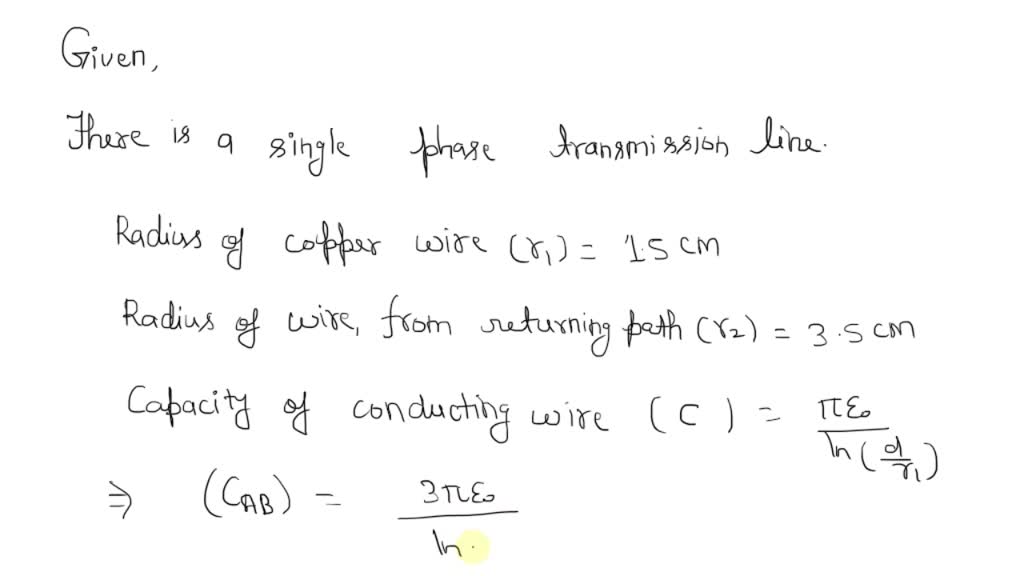 Given,
There is a single phase transmission line.
Radius of copper wire (r₁) = 1.5 cm
Radius of wire, from returning path (r₂) = 3.5 cm
Capacity of conducting wire (C) = πε₀ / ln(d/r₁)
⇒ (C_AB) = 3πε₀ / ln.